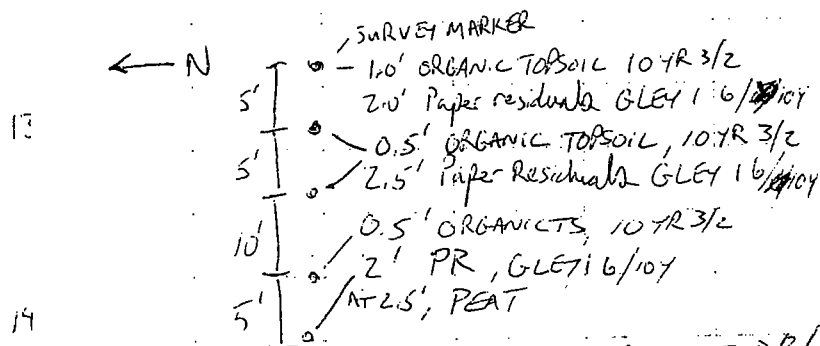 SURVEY MARKER
N
1.0' ORGANIC TOPSOIL 10 YR 3/2
5'
2.0' Paper residuals GLEY 1 6/10Y
13
0.5' ORGANIC TOPSOIL, 10 YR 3/2
5'
2.5' Paper Residuals GLEY 1 6/10Y
0.5' ORGANIC TS, 10 YR 3/2
10'
2' PR, GLEY 1 6/10Y
AT 2.5', PEAT
14
5'